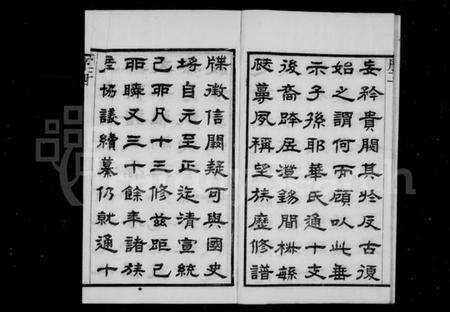 妄矜貴閥其於反古復
始之謂何而顧以此垂
示子孫耶華氏通十支
後裔跨居澄錫間椒緐
瓞蔓夙稱望族歷修譜
牒徵信闕疑可與國史
埒自元至正迄清宣統
己丣凡十三修茲距己
丣瞬又三十餘年諸族
協議續纂仍就通十